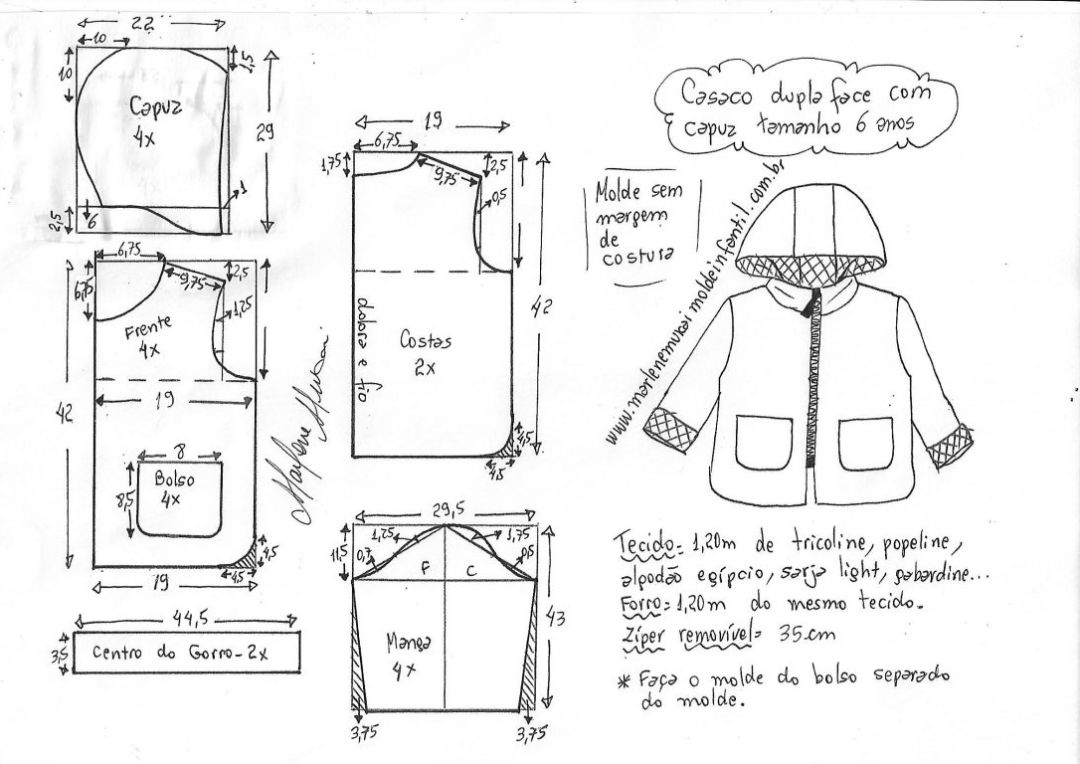 22
10
10
1,5
Capuz
4x
29
1
2,5
6
6,75
6,75
2,5
9,75
1,25
Frente
4x
42
19
8
8,5
Bolso
4x
4,5
4,5
19
44,5
3,5
Centro do Gorro - 2x
Marlene Mukai
19
6,75
1,75
2,5
9,75
0,5
42
dobra e fio
Costas
2x
4,5
4,5
29,5
11,5
1,25
1,75
0,7
0,5
F
C
43
Manga
4x
3,75
3,75
Casaco dupla face com
capuz tamanho 6 anos
Molde sem
margem
de
costura
www.marlenemukaimoldeinfantil.com.br
Tecido= 1,20m de tricoline, popeline,
algodão egípcio, sarja light, gabardine...
Forro= 1,20m do mesmo tecido.
Zíper removível= 35cm
* Faça o molde do bolso separado
do molde.